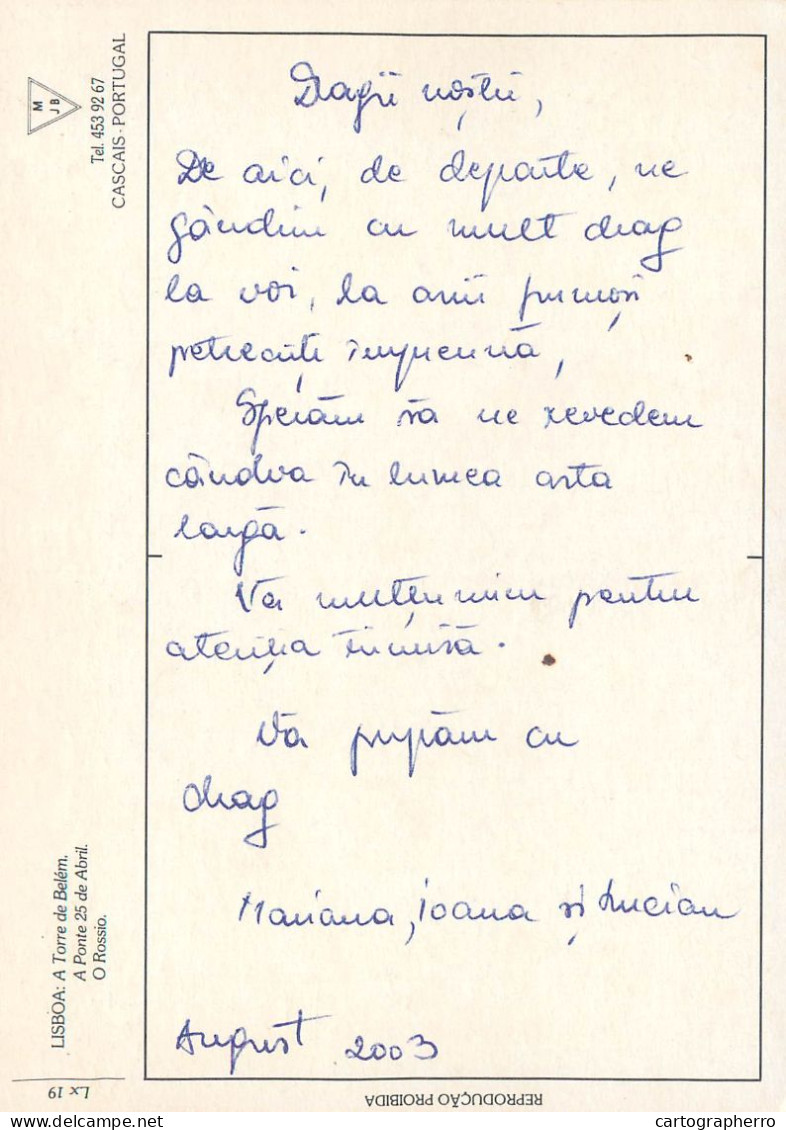 Dragii noștri,
De aici, de departe, ne
gândim cu mult drag
la voi, la anii frumoși
petrecuți împreună,
Sperăm să ne revedem
cândva în lumea asta
largă.
Vă mulțumim pentru
atenția trimisă.
Vă pupăm cu
drag
Mariana, Ioana și Lucian
August 2003
M
JB
Tel. 453 92 67
CASCAIS - PORTUGAL
LISBOA: A Torre de Belém.
A Ponte 25 de Abril.
O Rossio.
Lx 19
REPRODUÇÃO PROIBIDA
cartographerro